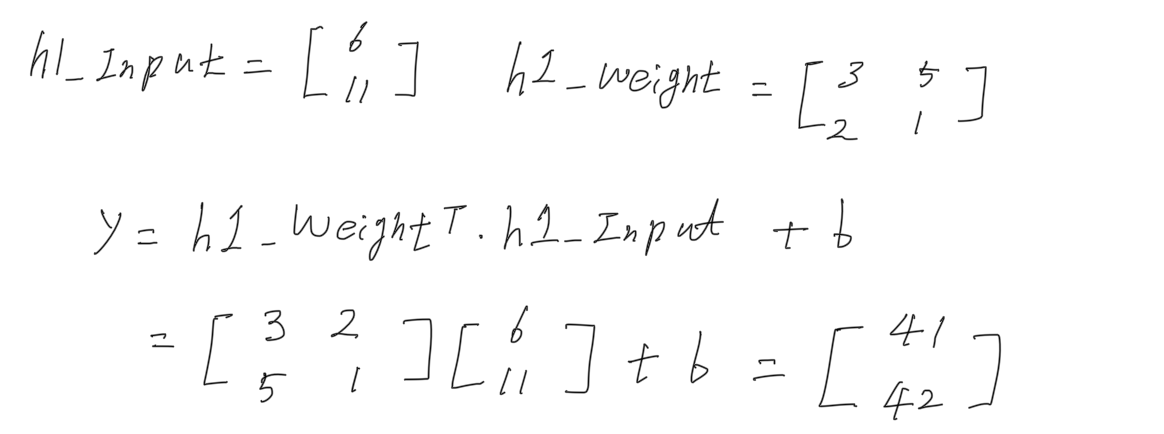 h1_Input = [ 6 11 ] h1_weight = [ 3 5 2 1 ]
y = h1_Weight T . h1_Input + b
= [ 3 2 5 1 ] [ 6 11 ] + b = [ 41 42 ]